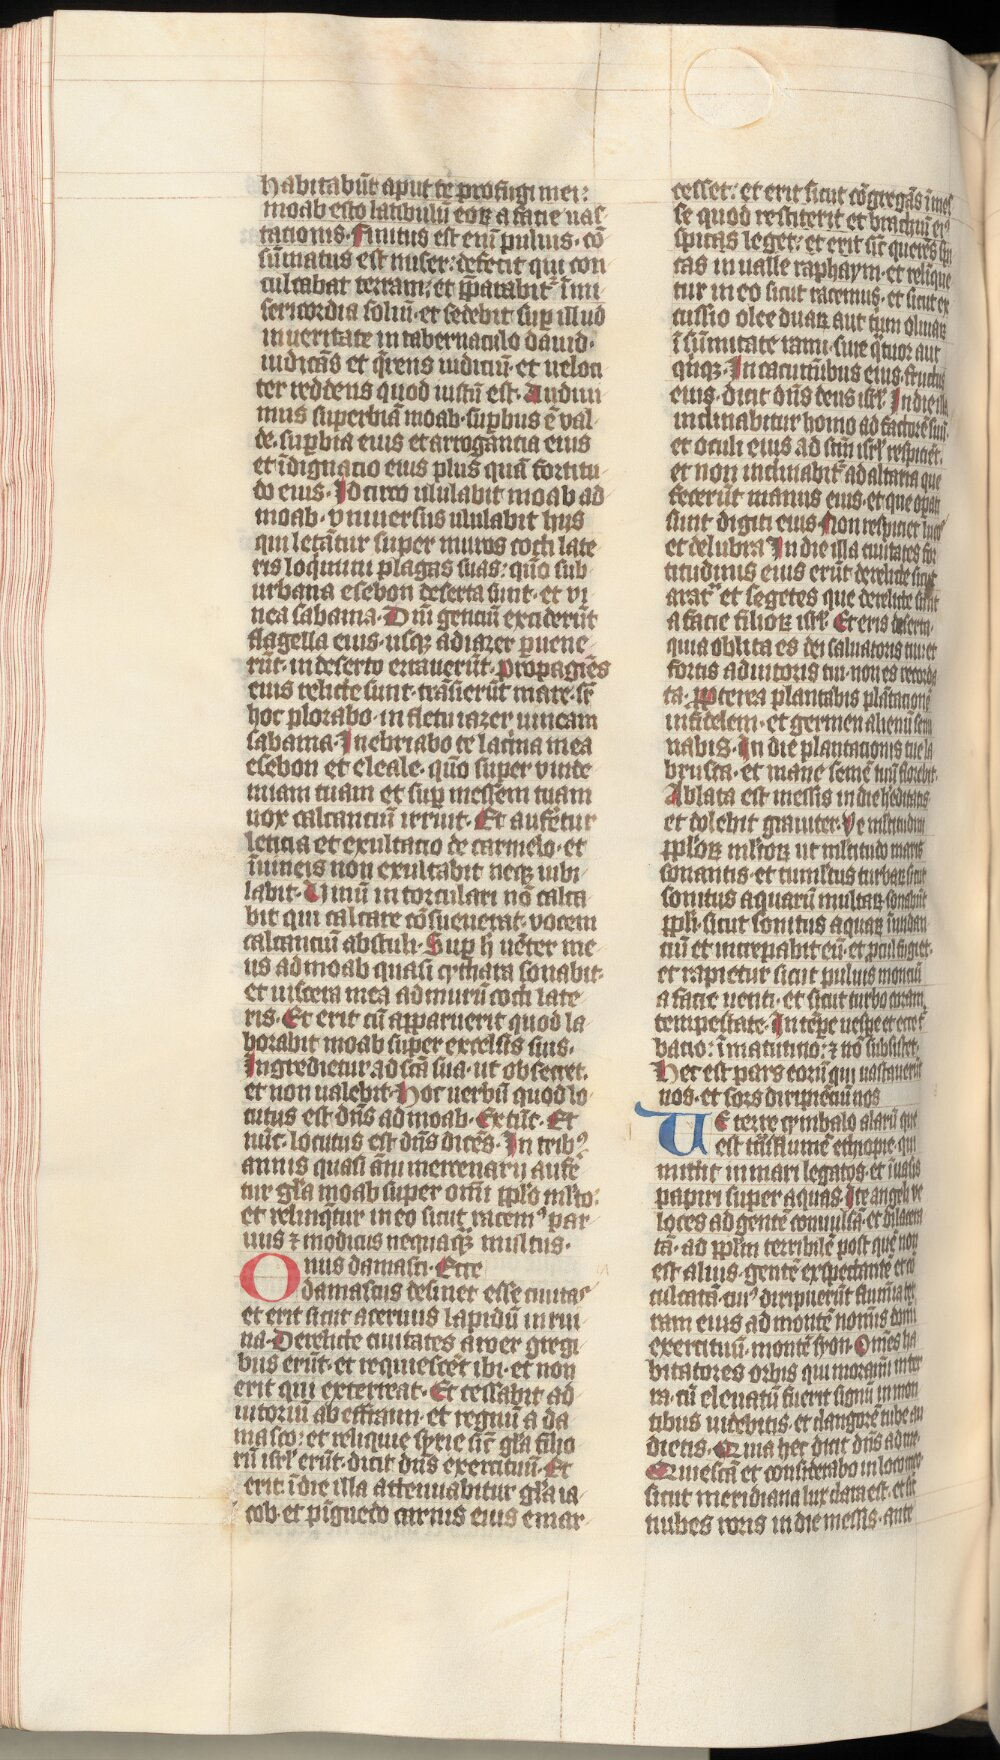 habitabūt aput te profugi mei:
moab esto latibulū eoꝝ a facie uas
tationis. Finitus est enī puluis. cō
sūmatus est miser: defecit qui con
culcabat terram: et p̄parabit᷑ ī mi
sericordia soliū. et sedebit suꝑ illud
in veritate in tabernaculo dauid.
iudicās et q̄rens iudiciū. et veloci
ter reddens quod iustū est. Audiui
mus superbiā moab. suꝑbus ē val
de. suꝑbia eius et arrogancia eius
et īdignacio eius plus quā fortitu
do eius. Idcirco ululabit moab ad
moab. vniuersus ululabit hiis
qui letātur super muros cocti late
ris loquimi plagas suas: quō sub
urbana esebon deserta sunt. et vi
nea sabama. Dn̄i genciū exciderūt
flagella eius. usqꝫ ad iazer ꝑuene
rūt. in deserto errauerūt. propagies
eius relicte sunt. trāsierūt mare. sr̄
hoc plorabo. in fletu iazer vineam
sabama. Inebriabo te lacrima mea
esebon et eleale. quō super vinde
miam tuam et suꝑ messem tuam
uox calcantiū irruit. Et aufēretur
leticia et exultacio de carmelo. et
ī vineis non exultabit neqꝫ iubi
labit. Vinū in torculari nō calca
bit qui calcare cōsueuerat. vocem
calcanciū abstuli. Suꝑ h̄ vēter me
us ad moab quasi cythara sonabit.
et viscera mea ad murū cocti late
ris. Et erit cū apparuerit quod la
borabit moab super excelsis suis.
Ingredietur ad sc̄a sua. ut obsecret.
et non valebit. Hoc uerbū quod lo
cutus est dn̄s ad moab. Ex tūc. Et
nūc. locutus est dn̄s dicēs. In tribꝰ
annis quasi ānī mercenarii aufe
tur gl̄a moab super omī ppl̄o ml̄to.
et relinq̄tur in eo sicut racemꝰ par
uus ⁊ modicus nequaqꝫ multus.
Onus damasci. Ecce
damascus desinet esse ciuitas
et erit sicut aceruus lapidū in rui
na. Derelicte ciuitates aroer gregi
bus erūt. et requiescēt ibi. et non
erit qui exterreat. Et cessabit ad
iutoriū ab effraim. et regnū a da
masco: et reliquie syrie sic̄ gl̄a filio
rū isrl̄ erūt. dicit dn̄s exercituū. Et
erit ī die illa attenuabitur gl̄a ia
cob. et pīguedo carnis eius emar
cesset: et erit sicut cōgregās ī mes
se quod restiterit et brachiū eiꝰ
spicas leget: et erit sic̄ querēs spi
cas in ualle raphaym. et relinque
tur in eo sicut racemus. et sicut ex
cussio olee duaꝝ aut trium oliuaꝝ
ī sūmitate rami. siue q̄tuor aut
qīqꝫ. In cacuminibus eius fructus
eius. dicit dn̄s deus isrl̄. In die illa
inclinabitur homo ad factorē suū.
et oculi eius ad sc̄m isrl̄ respiciēt.
et non inclinabit᷑ ad altaria que
fecerūt manus eius. et que oꝑati
sunt digiti eius. Non respiciet lucos
et delubra. In die illa ciuitates for
titudinis eius erūt derelicte sicut
arat᷑ et segetes que derelicte sunt
a facie filioꝝ isrl̄. Et eris deserta.
quia oblita es dei saluatoris tui. et
fortis adiutoris tui. non es recorda
ta. ꝓpterea plantabis plātationē
infidelem. et germen alienū semi
nabis. In die plantacionis tue la
brusca. et mane semē tuū florebit.
Ablata est messis in die h̓editatis
et dolebit grauiter. Ve ml̄titudini
ppl̄oꝝ ml̄toꝝ ut ml̄titudo maris
sonantis. et tumltus turbaꝝ sicut
sonitus aquarū multaꝝ. sonabūt
ppl̄i. sicut sonitus aquaꝝ īundan
ciū et increpabit eū. et ꝓcul fugiet.
et rapietur sicut puluis monciū
a facie uenti. et sicut turbo coram
tempestate. In tēꝑe uesꝑe et ecce t᷑
bacio: ī matutino: ⁊ nō subsistet.
Hec est pars eorū qui uastauerūt
nos. et sors diripienciū nos
Ve terre cymbalo alarū que
est trās flumē ethiopie. qui
mittit in mari legatos. et ī uasis
papiri super aquas. Ite angeli ve
loces ad gentē conuulsā. et dilacera
tā. ad ppl̄m terribilē post quē non
est alius. gentē exspectantē et cō
culcatā. cuiꝰ diripuerūt flumīa ter
ram eius ad montē nominis domī
exercituū. montē syon. Omēs ha
bitatores orbis qui moramī in ter
ra. cū eleuatū fuerit signū in mon
tibus uidebitis. et clangorē tube au
dietis. Quia hec dicit dn̄s ad me.
Quiescā et considerabo in loco meo
sicut meridiana lux clara est. et sic̄
nubes roris in die messis. ante